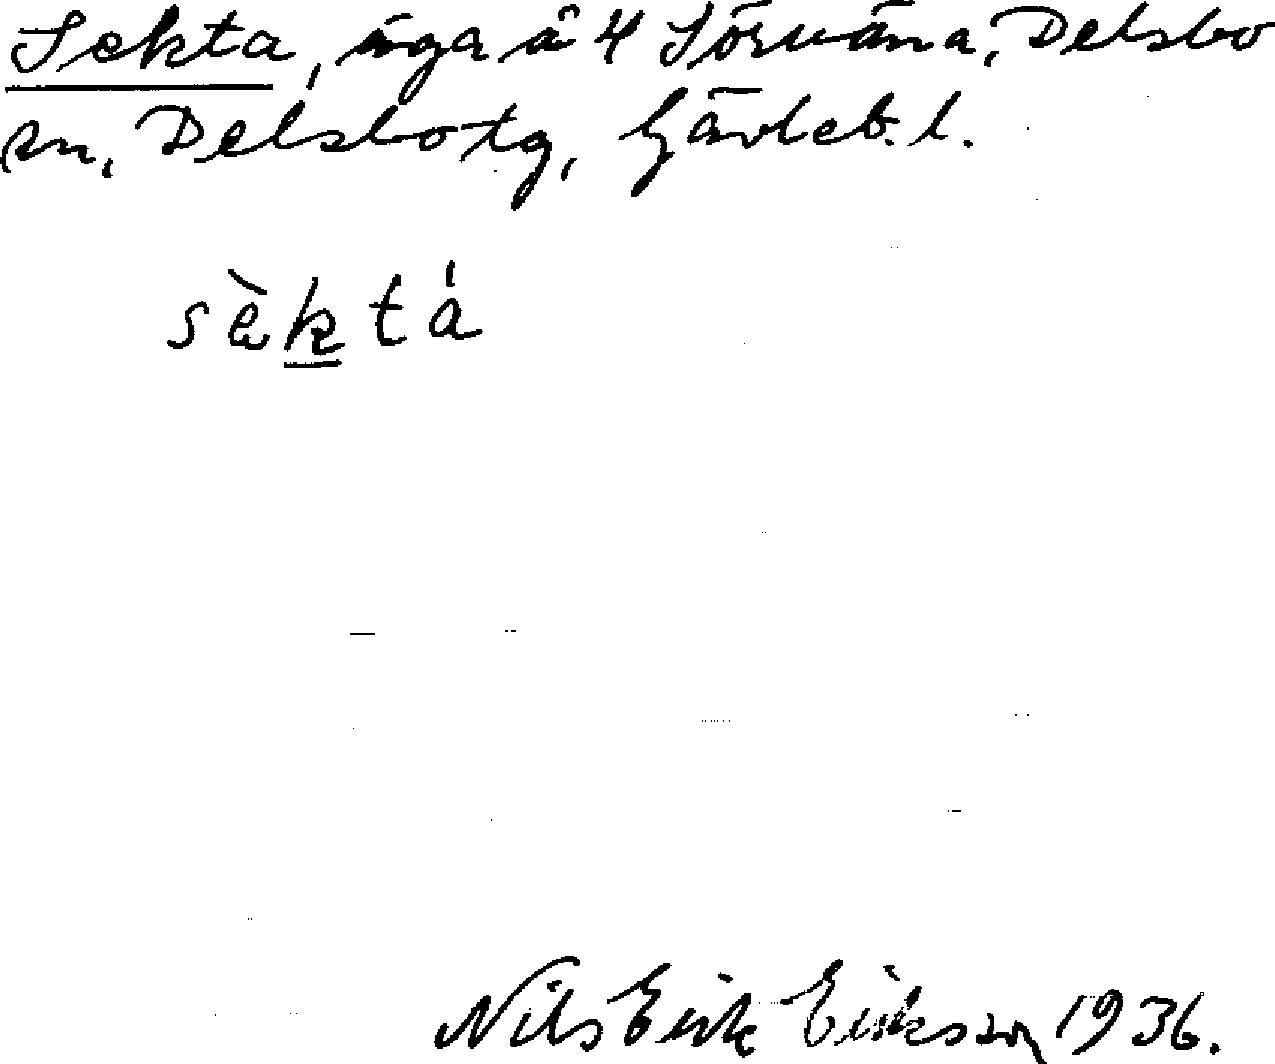 Sekta, äga å 4 Sörväna, Delsbo
sn, Delsbo tg, Gävleb. l.
sèktá
Nils Erik Eriksson 1936.